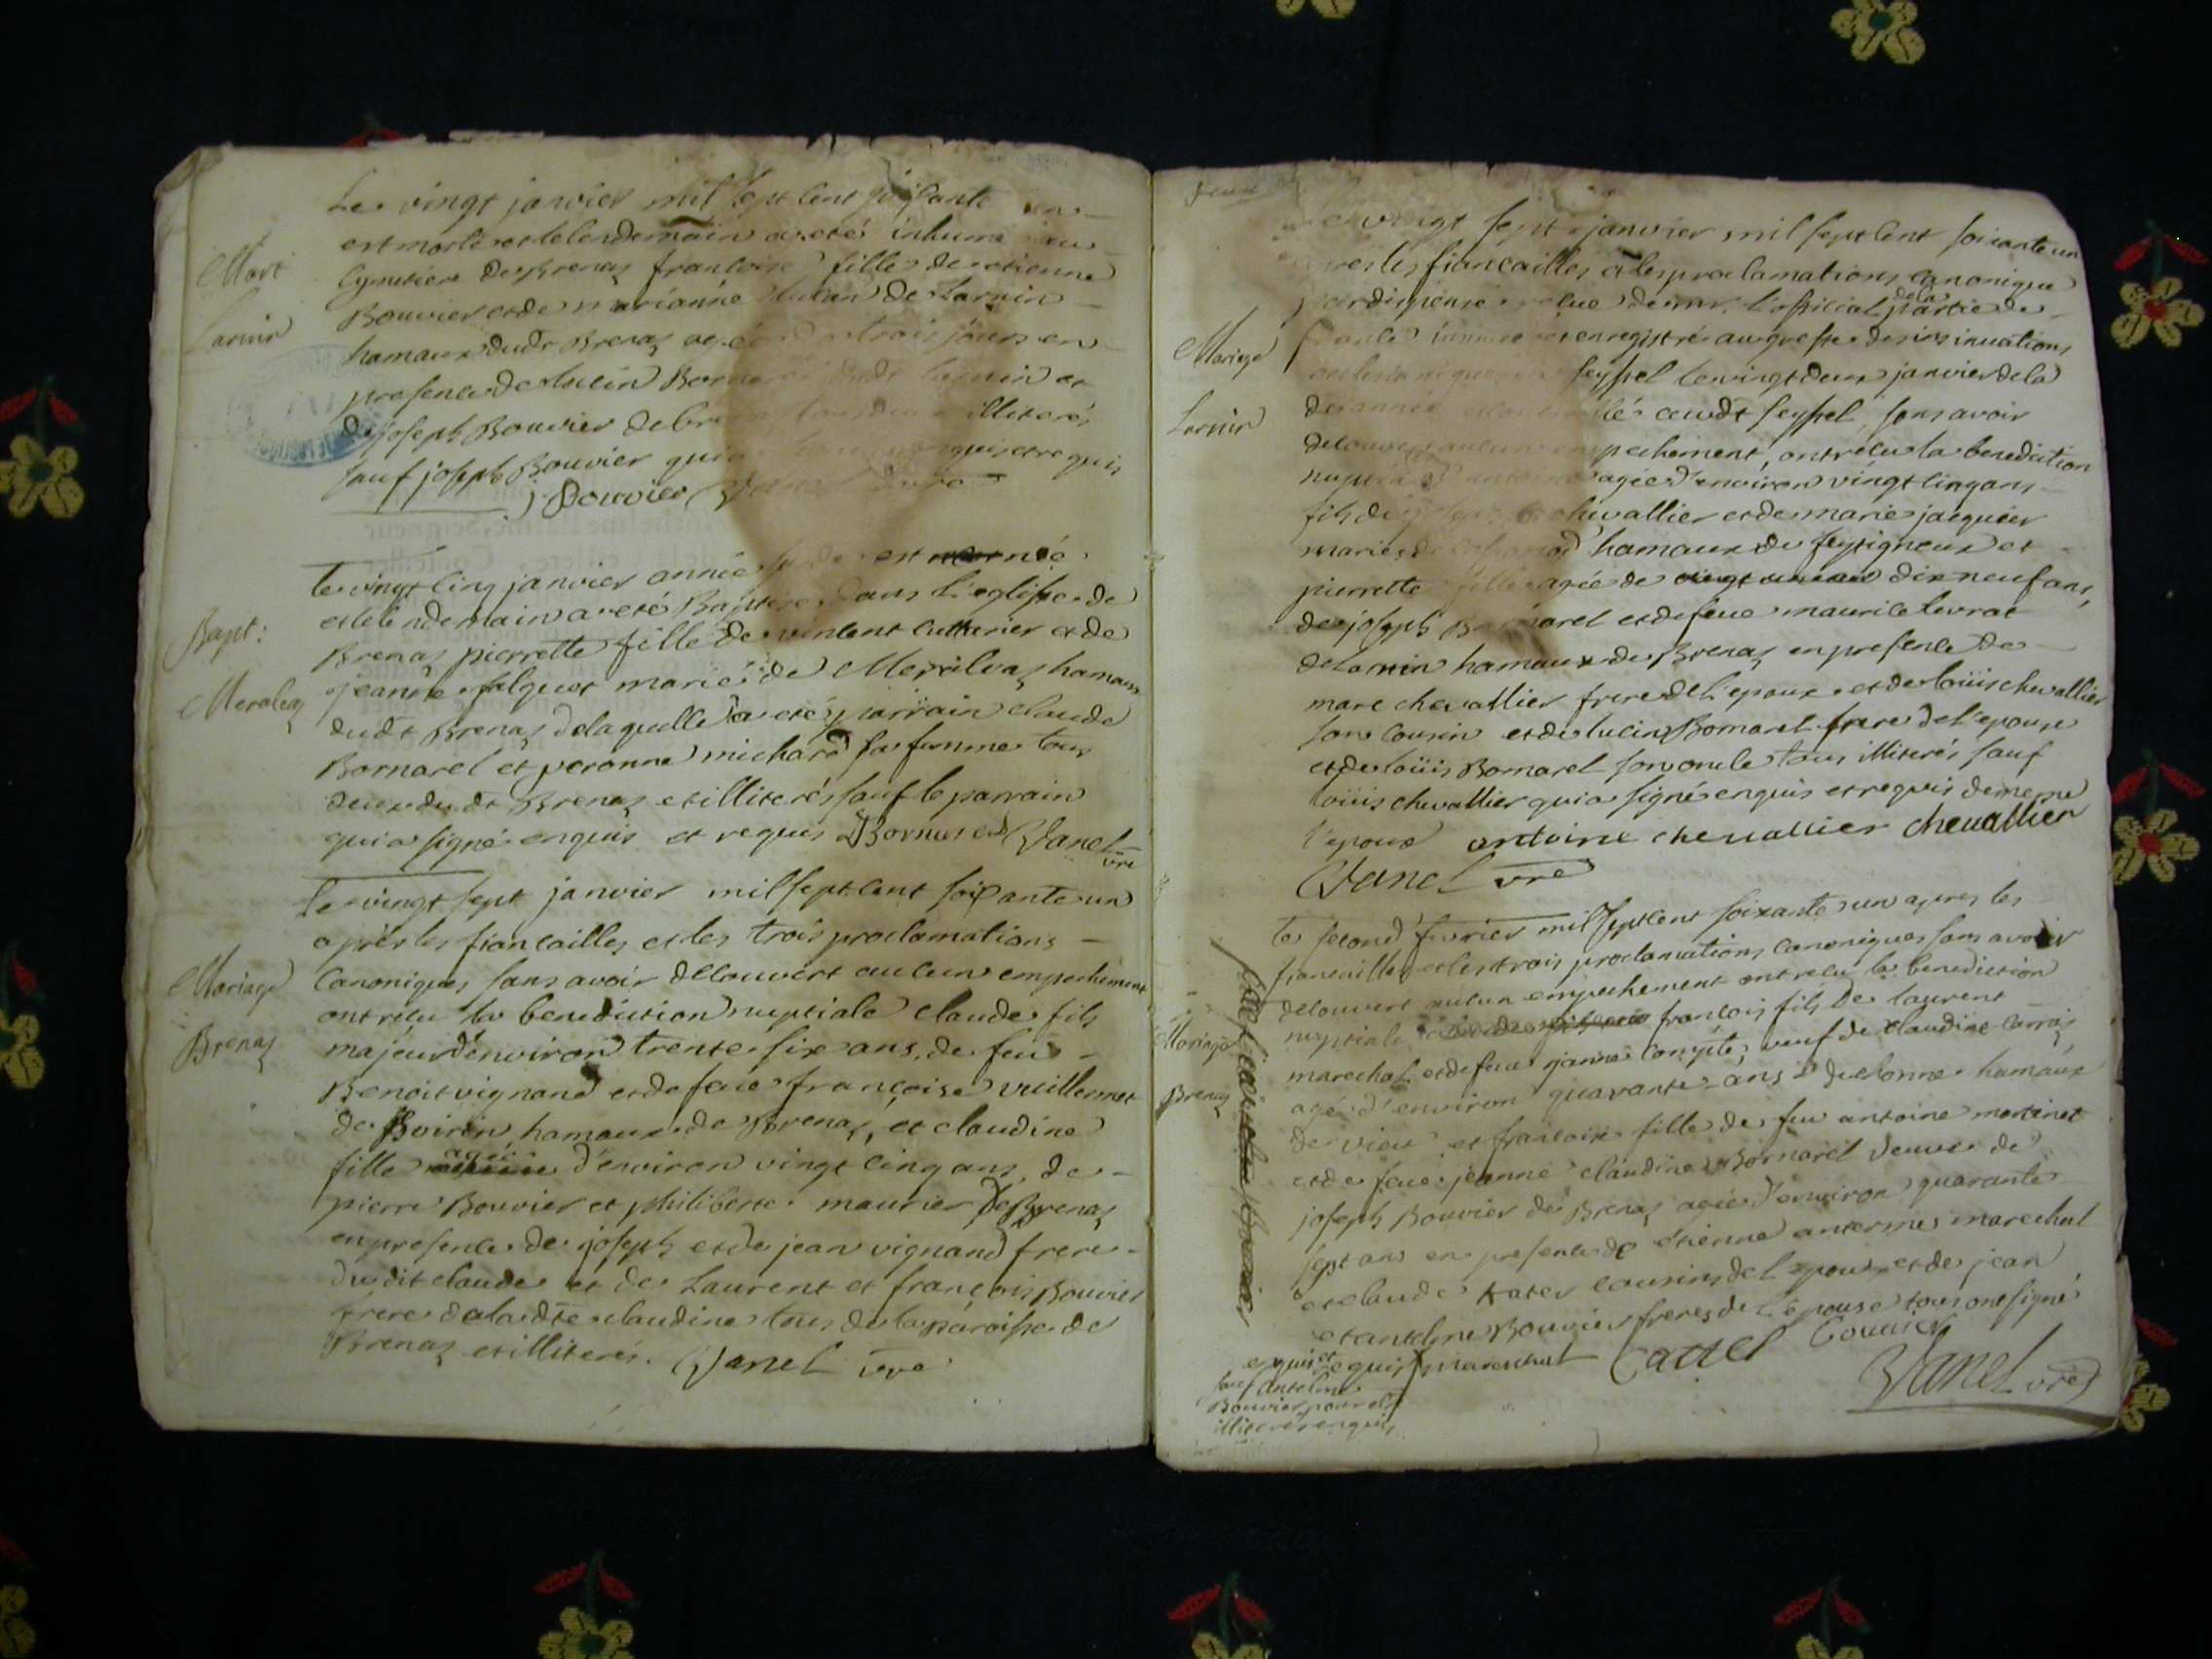 Le vingt janvier mil sept cent soisante un
est morte et le lendemain a eté inhumé au
Cymetiere de Brenaz francoise fille de etienne
Mort
Bouvier et de marianne de Larnin
Larnin
hamaux dudt Brenaz agée de trois jours en
presence de lucin dudt Larnin et
de joseph Bouvier de illiterés
sauf joseph Bouvier qui enquis et requis
j. Bouvier Vanel vre
Le vingt cinq janvier année est né
et le lendemain a eté Baptisé dans l'eglise de
Bapt:
Brenaz pierrette fille de vincent cutturier et de
Meraleaz
jeanne falquet mariés de hamaux
dudt Brenaz de laquelle a eté parrain claude
Bornarel et peronne michard sa femme tous
deux dudt Brenaz et illiterés sauf le parrain
qui a signé enquis et requis Vanel vre
Le vingt sept janvier mil sept cent soisante un
après les fiancailles et les trois proclamations
Mariage
canoniques sans avoir decouvert aucun empechement
ont recu la benediction nuptiale claude fils
Brenaz
majeur d'environ trente six ans, de feu
Benoit vignand et de feue françoise vuillermet
de Boirin hamaux de Brenaz, et claudine
fille agée d'environ vingt cinq ans, de
pierre Bouvier et philiberte maurier de Brenaz
en presence de joseph et de jean vignand frere
dudit claude et de Laurent et francois Bouvier
frere de la dte claudine tous de la paroisse de
Brenaz et illiterés. Vanel vre
deux
Le vingt sept janvier mil sept cent soixante un
apres les fiancailles et les proclamations canonique
par dispense de mr. l'official de la partie de
Mariage
france et enregistré au greffe des insinuations
seyssel le vingt deux janvier de la
Larnin
de année audt seyssel, sans avoir
decouvert aucun empechement, ont recu la benediction
agée d'environ vingt cinq ans
fils de chevallier et de marie jacquier
mariés de hamaux de seytigneux et
pierrette fille agée de dix neuf ans,
de joseph Bornarel et de feue maurice levrat
de Larnin hamaux de Brenaz en presence de
marc chevallier frere de l'epoux et de loüis chevallier
son cousin et de lucin Bornarel frere de l'epouse
et de loüis Bornarel son oncle tous illiterés sauf
loüis chevallier qui a signé enquis et requis de meme
l'epoux antoine chevallier chevallier
Vanel vre
Le second fevrier mil sept cent soixante un apres les
fiancailles et les trois proclamations canoniques sans avoir
decouvert aucun empechement ont recu la benediction
nuptiale francois fils de laurent
Mariage
marechal et de feue jeanne compte, veuf de claudine carraz
Brenaz
agé d'environ quarante ans hamaux
de vieu et francoise fille de feu antoine martinet
et de feue jeanne claudine Bornarel veuve de
joseph Bouvier de Brenaz agée d'environ quarante
sept ans en presence de etienne marechal
et claude cousins de l'epoux et de jean
et antelme Bouvier freres de l'epouse tous ont signé
enquis et requis mareschal Cattel Bouvier
sauf antelme
Bouvier pour etre
illiterés enquis
Vanel vre